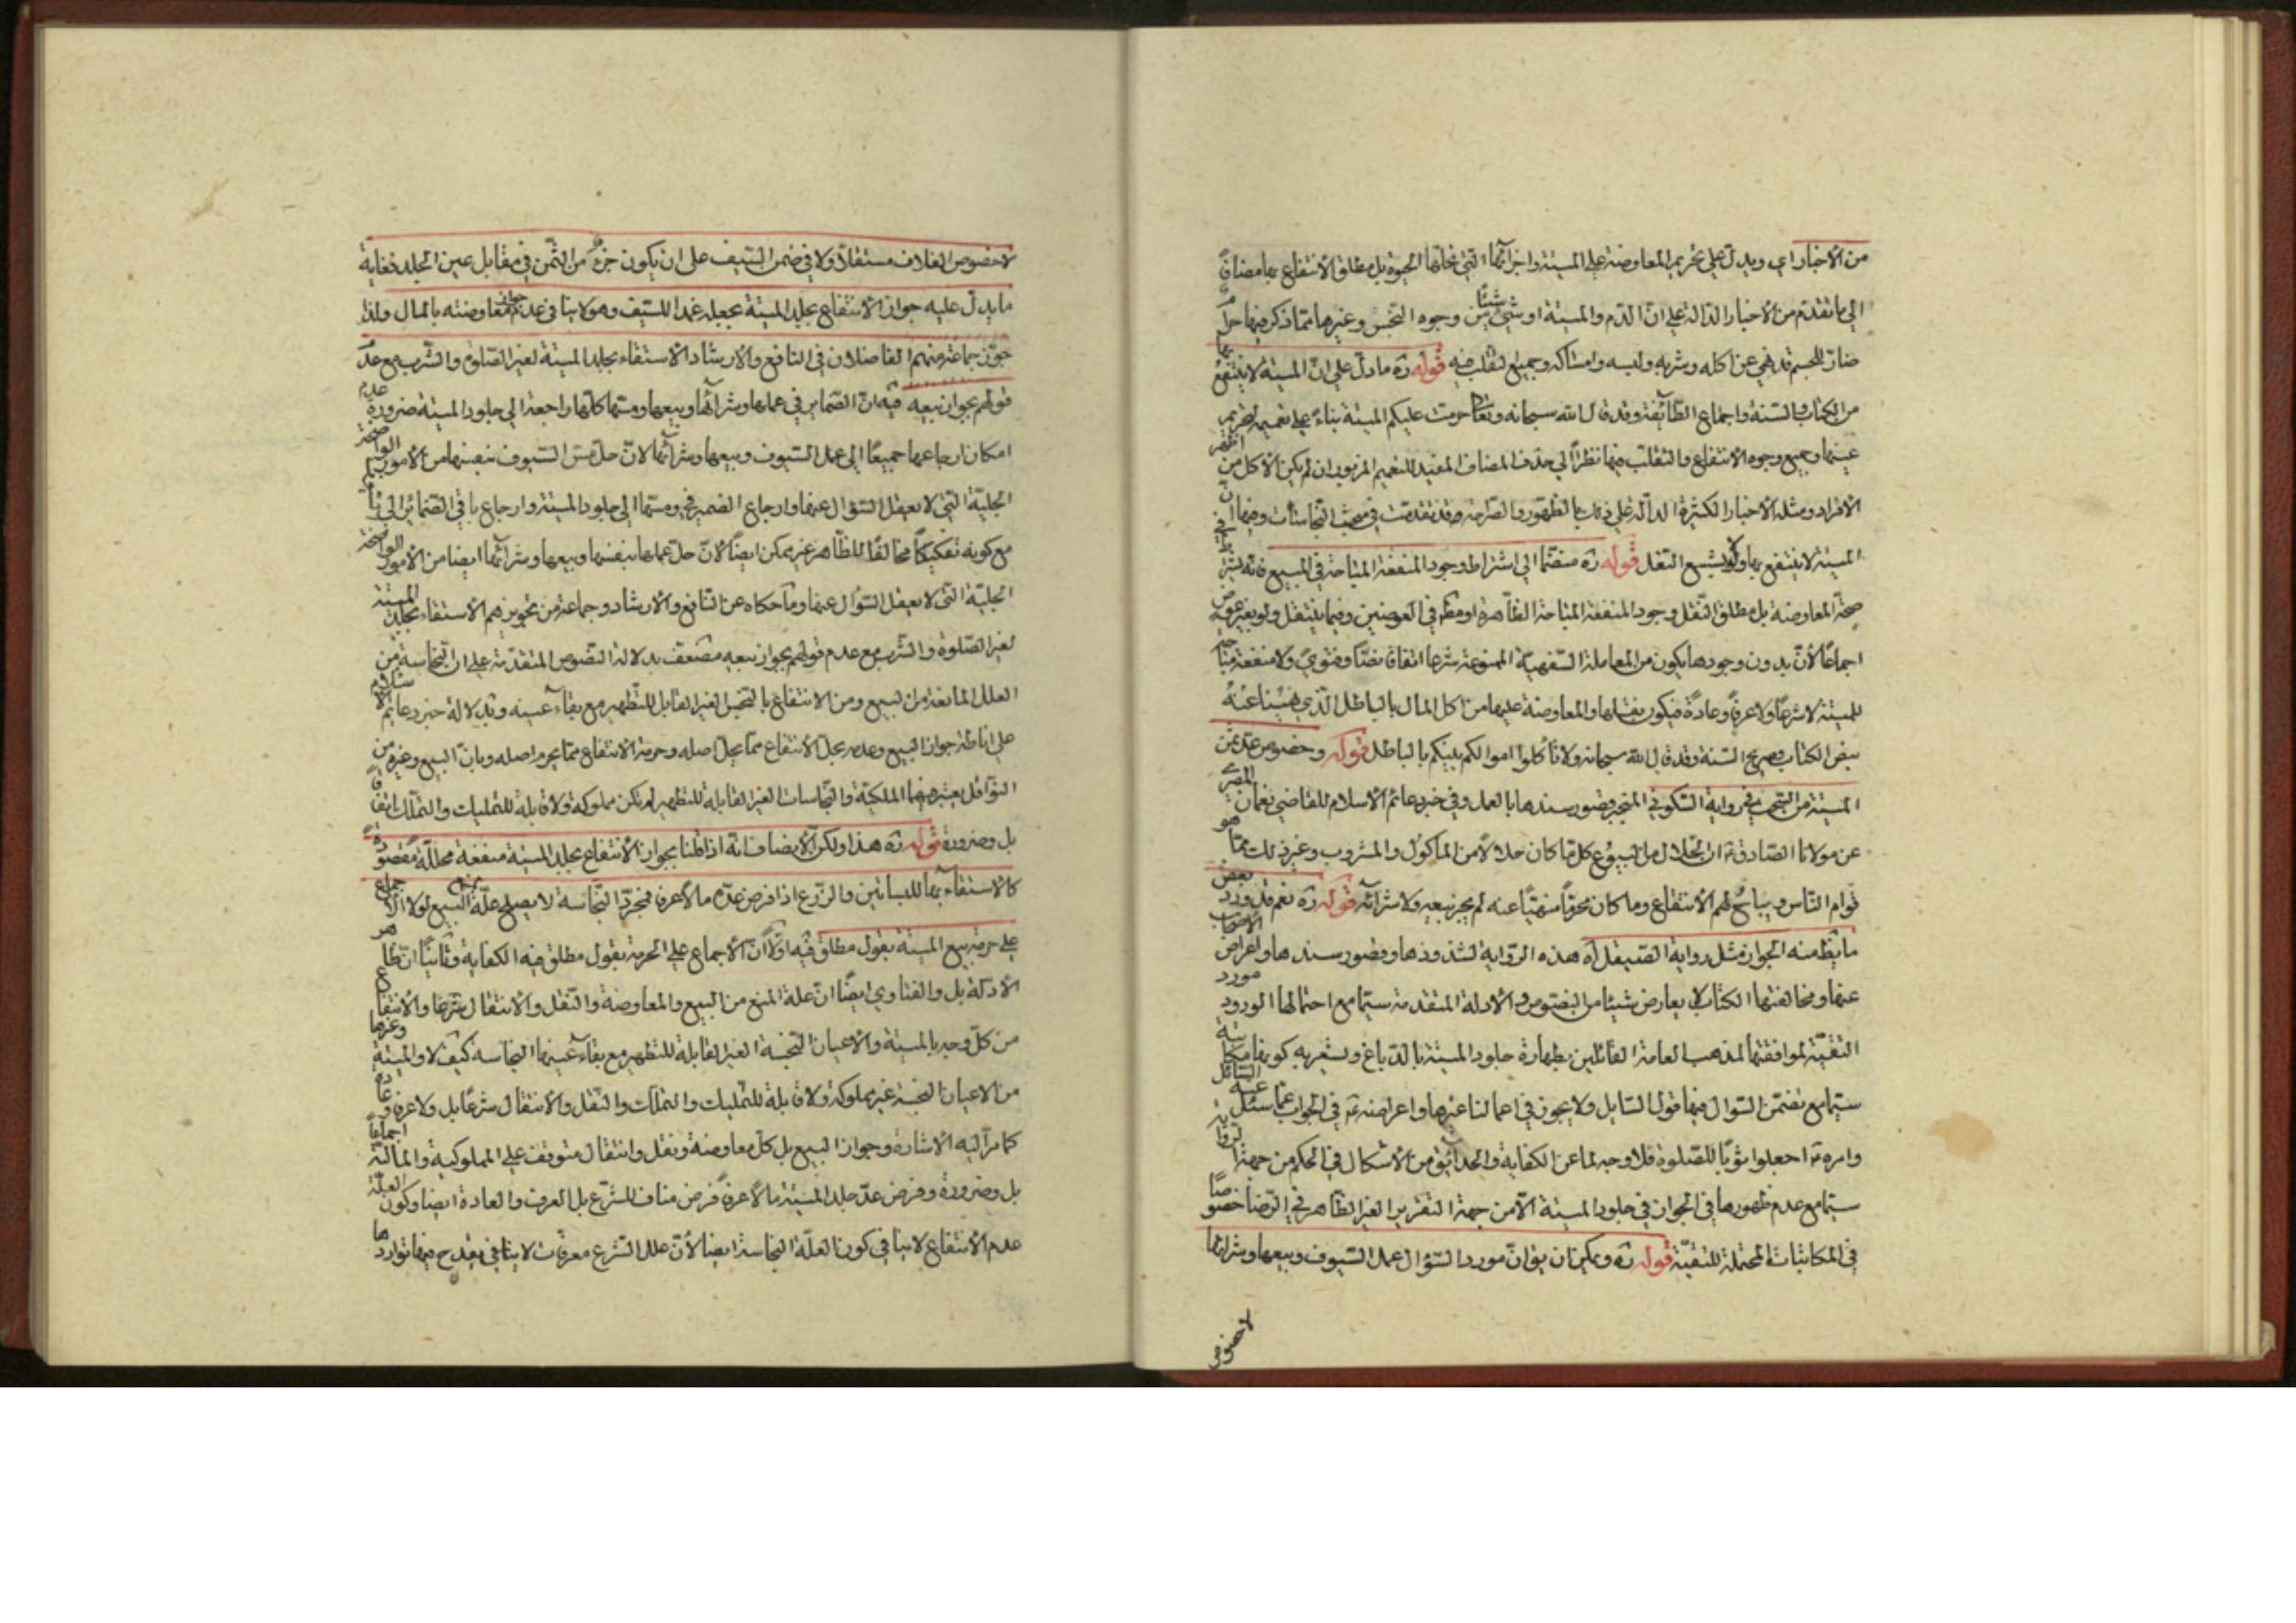 من الأخبار اي ويدل على تحريم المعاوضة على الميتة واجزائها التي تحلها الحيوة بل مطلق الانتفاع بها مضافا
الى ما تقدم من الأخبار الدالة على ان الدم والميتة او شيء من وجوه النجس وغيرها مما ذكر فيها حرام
ضار للجسم قد نهى عن اكله وشربه ولبسه وامساكه وجميع التقلب فيه قوله ره ما دل على ان الميتة لا ينتفع بها
من الكتاب والسنة واجماع الطائفة وقد قال الله سبحانه وتعالى حرمت عليكم الميتة بناء على تعميم تحريم
عينها وجميع وجوه الانتفاع والتقلب فيها نظرا الى حذف المضاف المفيد للتعميم المزبور ان لم يكن الاكل من اظهر
الافراد ومثله الأخبار الكثيرة الدالة على ذلك بالظهور والصراحة وقد تقدمت في مبحث النجاسات وفيها ان
الميتة لا ينتفع بها ولو بشسع النعل قوله ره منضما الى اشتراط وجود المنفعة المباحة في المبيع فانه يشترط في
صحة المعاوضة بل مطلق النقل وجود المنفعة المباحة الظاهرة او مطلقا في العوضين وفيما ينتقل ولو بغير عوض
اجماعا لأن بدون وجودها يكون من المعاملة السفهية الممنوعة شرعا اتفاقا نصا وفتوى ولا منفعة مباحة
للميتة لا شرعا ولا عرفا وعادة فيكون نقلها والمعاوضة عليها من اكل المال بالباطل الذي نهينا عنه
بنص الكتاب وصريح السنة وقد قال الله سبحانه ولا تأكلوا اموالكم بينكم بالباطل قوله وخصوص عد ثمن
الميتة من السحت في رواية السكوني المنجبر قصور سندها بالعمل وفي خبر دعائم الاسلام للقاضي نعمان المصري
عن مولانا الصادق ع ان الحلال من البيوع كل ما كان حلالا من المأكول والمشروب وغير ذلك مما هو
قوام للناس ويباح لهم الانتفاع وما كان محرما منهيا عنه لم يجز بيعه ولا شرائه قوله ره نعم قد ورد بعض
ما يظهر منه الجواز مثل رواية الصيقل اه هذه الرواية لشذوذها وقصور سندها واعراض الاصحاب
عنها ومخالفتها الكتاب لا يعارض شيئا من النصوص والادلة المتقدمة سيما مع احتمالها الورود مورد
التقية لموافقتها لمذهب العامة القائلين بطهارة جلود الميتة بالدباغ ويشعر به كونها مكاتبة
سيما مع تضمن السؤال فيها قول السايل ولا يجوز في اعمالنا غيرها واعراضه ع في الجواب عما سئل عنه السائل
وامره ع اجعلوا ثوبا للصلوة فلا وجه لما عن الكفاية والحدائق من الأشكال في الحكم من جهة الرواية
سيما مع عدم ظهورها في الجواز في جلود الميتة الا من جهة التقرير الغير الظاهر في الرضا خصوصا
في المكاتبات المحتملة للتقية قوله ره ويمكن ان يقال ان مورد السؤال عمل السيوف وبيعها وشرائها
لا خصوص
لا خصوص الغلاف مستقلا ولا في ضمن السيف على ان يكون جزء من الثمن في مقابل عين الجلد فغاية
ما يدل عليه جواز الانتفاع بجلد الميتة بجعله غمدا للسيف وهو لا ينافي عدم جواز معاوضته بالمال ولذا
جوز جماعة منهم الفاضلان في النافع والارشاد الاستقاء بجلد الميتة لغير الصلوة والشرب مع عدم
قولهم بجواز بيعه فيه ان الضماير في عملها وشرائها وبيعها ومسها كلها راجعة الى جلود الميتة ضرورة عدم
امكان ارجاعها جميعا الى عمل السيوف وبيعها وشرائها لان حل مس السيوف نفسها من الأمور الواضحة
الجلية التي لا يعقل السؤال عنها وارجاع الضمير في ومسها الى جلود الميتة وارجاع باقي الضمائر الى
مع كونه تفكيكا مخالفا للظاهر غير ممكن ايضا لان حل عملها بنفسها وبيعها وشرائها ايضا من الأمور الواضحة
الجلية التي لا يعقل السؤال عنها وما حكاه عن النافع والارشاد وجماعة من تجويزهم الاستقاء بجلد الميتة
لغير الصلوة والشرب مع عدم قولهم بجواز بيعه مضعف بدلالة النصوص المتقدمة على ان النجاسة من
العلل المانعة من البيع ومن الانتفاع بالنجس الغير القابل للتطهير مع بقاء عينه وبدلالة خبر دعائم الاسلام
على اناطة جواز البيع وعدمه بحل الانتفاع مما يحل اصله وحرمة الانتفاع مما يحرم اصله وبان البيع وغيره من
النواقل يعتبر فيها الملكية والنجاسات الغير القابلة للتطهير لم تكن مملوكة ولا قابلة للتمليك والتملك اتفاقا
بل وضرورة قوله ره هذا ولكن الانصاف انه اذا قلنا بجواز الانتفاع بجلد الميتة منفعة محللة مقصودة
كالاستقاء بها للبساتين والزرع اذا فرض عده مالا عرفا فمجرد النجاسة لا يصلح علة لمنع البيع لولا الاجماع
على حرمة بيع الميتة بقول مطلق فيه اولا ان الاجماع على الحرمة بقول مطلق فيه الكفاية وثانيا ان ظاهر
الأدلة بل والفتاوى ايضا ان علة المنع من البيع والمعاوضة والنقل والانتقال شرعا والانتفاع
من كل وجه بالميتة والأعيان النجسة الغير القابلة للتطهير مع بقاء عينها النجاسة كيف لا والميتة وغيرها
من الاعيان النجسة غير مملوكة ولا قابلة للتمليك والتملك والنقل والانتقال شرعا بل ولا عرفا وعادة
كما مر اليه الاشارة وجواز البيع بل كل معاوضة ونقل وانتقال متوقف على المملوكية والمالية اجماعا
بل وضرورة وفرض عد جلد الميتة مالا عرفا فرض مناف للشرع بل العرف والعادة ايضا وكون العلة
عدم الانتفاع لا ينافي كون العلة النجاسة ايضا لأن علل الشرع معرفات لا ينافي يقدح فيها تواردها